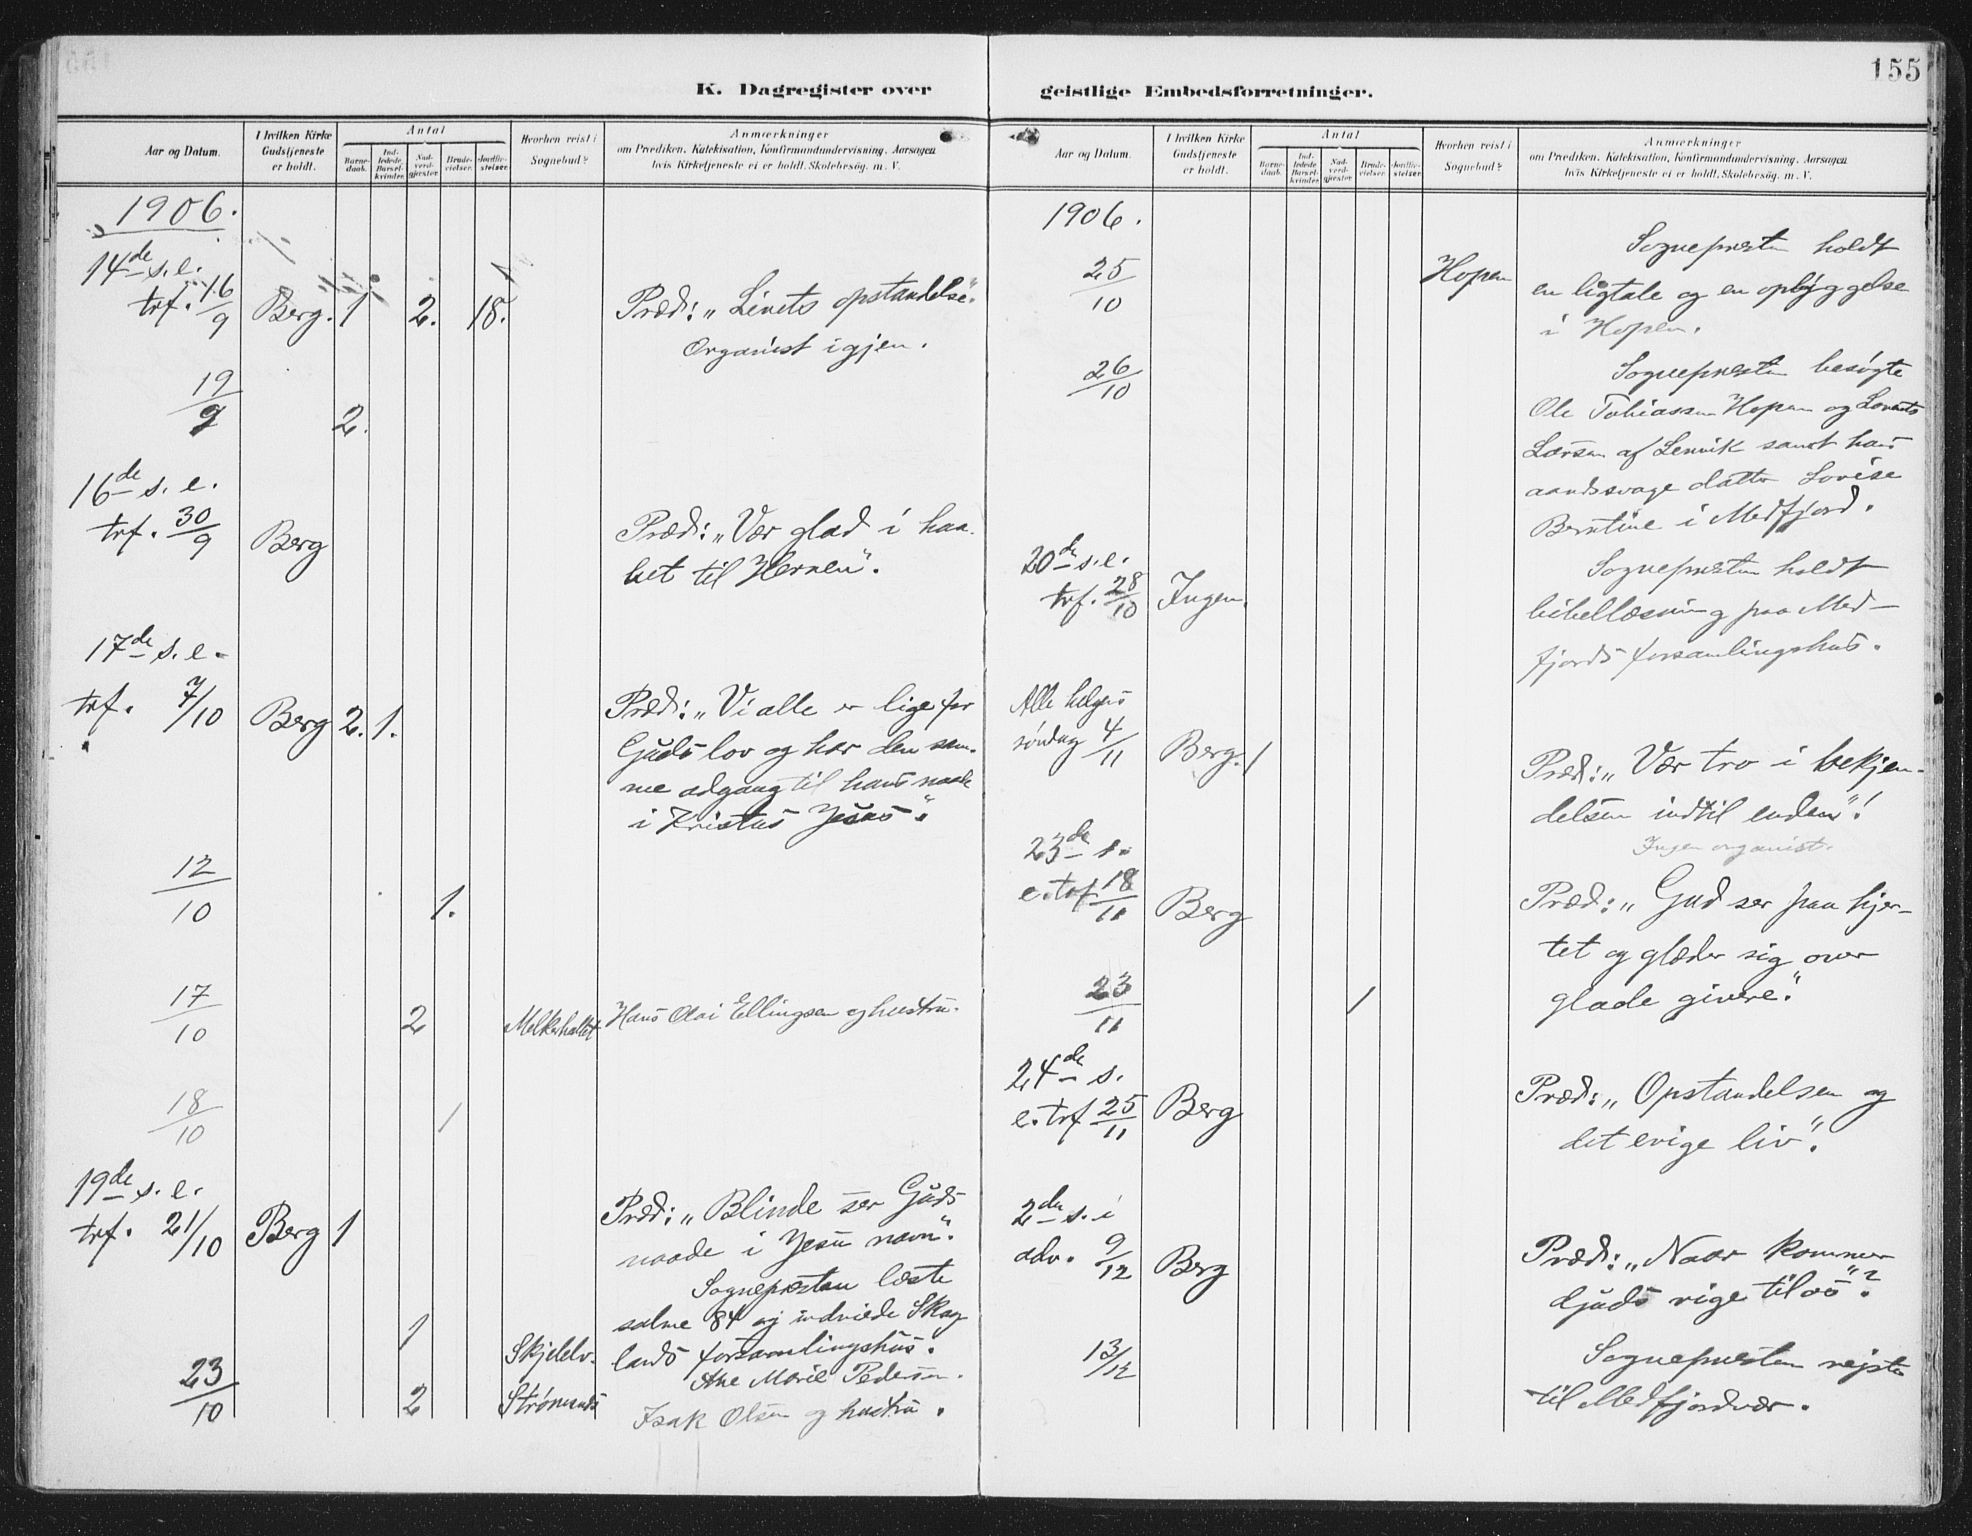 155
K. Dagregister over
Aar og Datum.
I hvilken Kirke
Gudstjeneste
er holdt.
Antal
Barne-
daab.
Ind-
ledede
Barsel-
kvinder.
Nad-
verd-
gjæster.
Brude-
vielser.
Jordfæ-
stelser.
Hvorhen reist i
Sognebud?
Anmærkninger
om Prædiken, Katekisation, Konfirmandundervisning, Aarsagen
hvis Kirketjeneste ei er holdt, Skolebesøg, m. V.
1906.
14de s. e.
trf. 16/9 Berg. 1 2. 18. Præd: „Livets opstandelse".
Organist igjen.
19/9 2.
16de s. e.
trf. 30/9 Berg Præd: „Vær glad i haa-
bet til Herren".
17de s. e.
trf. 7/10 Berg 2. 1. Præd: „Vi alle er lige for
Guds lov og har den sam-
me adgang til hans naade
i Kristus Jesus".
12/10 1.
17/10 2 Melkehallet Hans Olai Ellingsen og hustru.
18/10 1
19de s. e.
trf. 21/10 Berg 1 Præd: „Blinde ser Guds
naade i Jesu navn".
Sognepresten læste
salme 84 og indviede Skag
lands forsamlingshus.
1 Skjelelv. Ane Marie Pedersen.
23/10 2 Strømsnæs Isak Olsen og hustru.
geistlige Embedsforretninger.
Aar og Datum.
I hvilken Kirke
Gudstjeneste
er holdt.
Antal
Barne-
daab.
Ind-
ledede
Barsel-
kvinder.
Nad-
verd-
gjæster.
Brude-
vielser.
Jordfæ-
stelser.
Hvorhen reist i
Sognebud?
Anmærkninger
om Prædiken, Katekisation, Konfirmandundervisning, Aarsagen
hvis Kirketjeneste ei er holdt, Skolebesøg, m. V.
1906.
25/10 Hopen Sognepresten holdt
en ligtale og en opbyggelse
i Hopen.
26/10 Sognepresten besøgte
Ole Tobiassen Hopen og Lorents
Larsen af Lenvik samt hans
aandssvage datter Lovise
Berntine i Medfjord.
20de s. e.
trf. 28/10 Ingen. Sognepresten holdt
bibellæsning paa Med-
fjords forsamlingshus.
Alle helgens
søndag 4/11 Berg. 1 Præd: „Vær tro i bekjen-
delsen indtil enden"!
Ingen organist.
23de s.
e. trf 18/11 Berg Præd: „Gud ser paa hjer-
tet og glæder sig over
glade givere".
23/11 1
24de s.
e. trf 25/11 Berg Præd: „Opstandelsen og
det evige liv".
2den s. i
adv. 9/12 Berg Præd: „Naar kommer
Guds rige til os"?
13/12 Sognepresten rejste
til Medfjordvær.